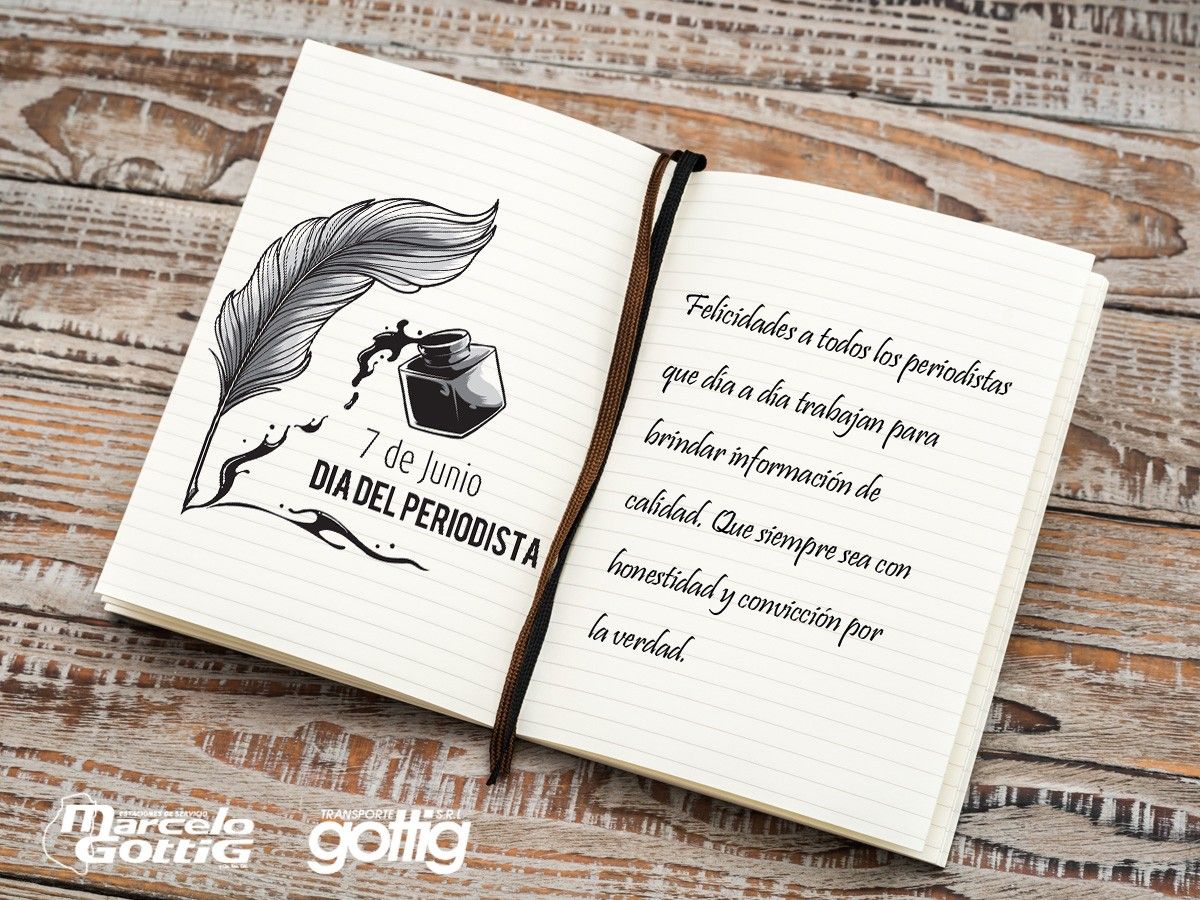 7 de Junio
DIA DEL PERIODISTA
Felicidades a todos los periodistas
que dia a dia trabajan para
brindar información de
calidad. Que siempre sea con
honestidad y convicción por
la verdad.
ESTACIONES DE SERVICIO
Marcelo
Gottig
TRANSPORTE S.R.L.
gottig